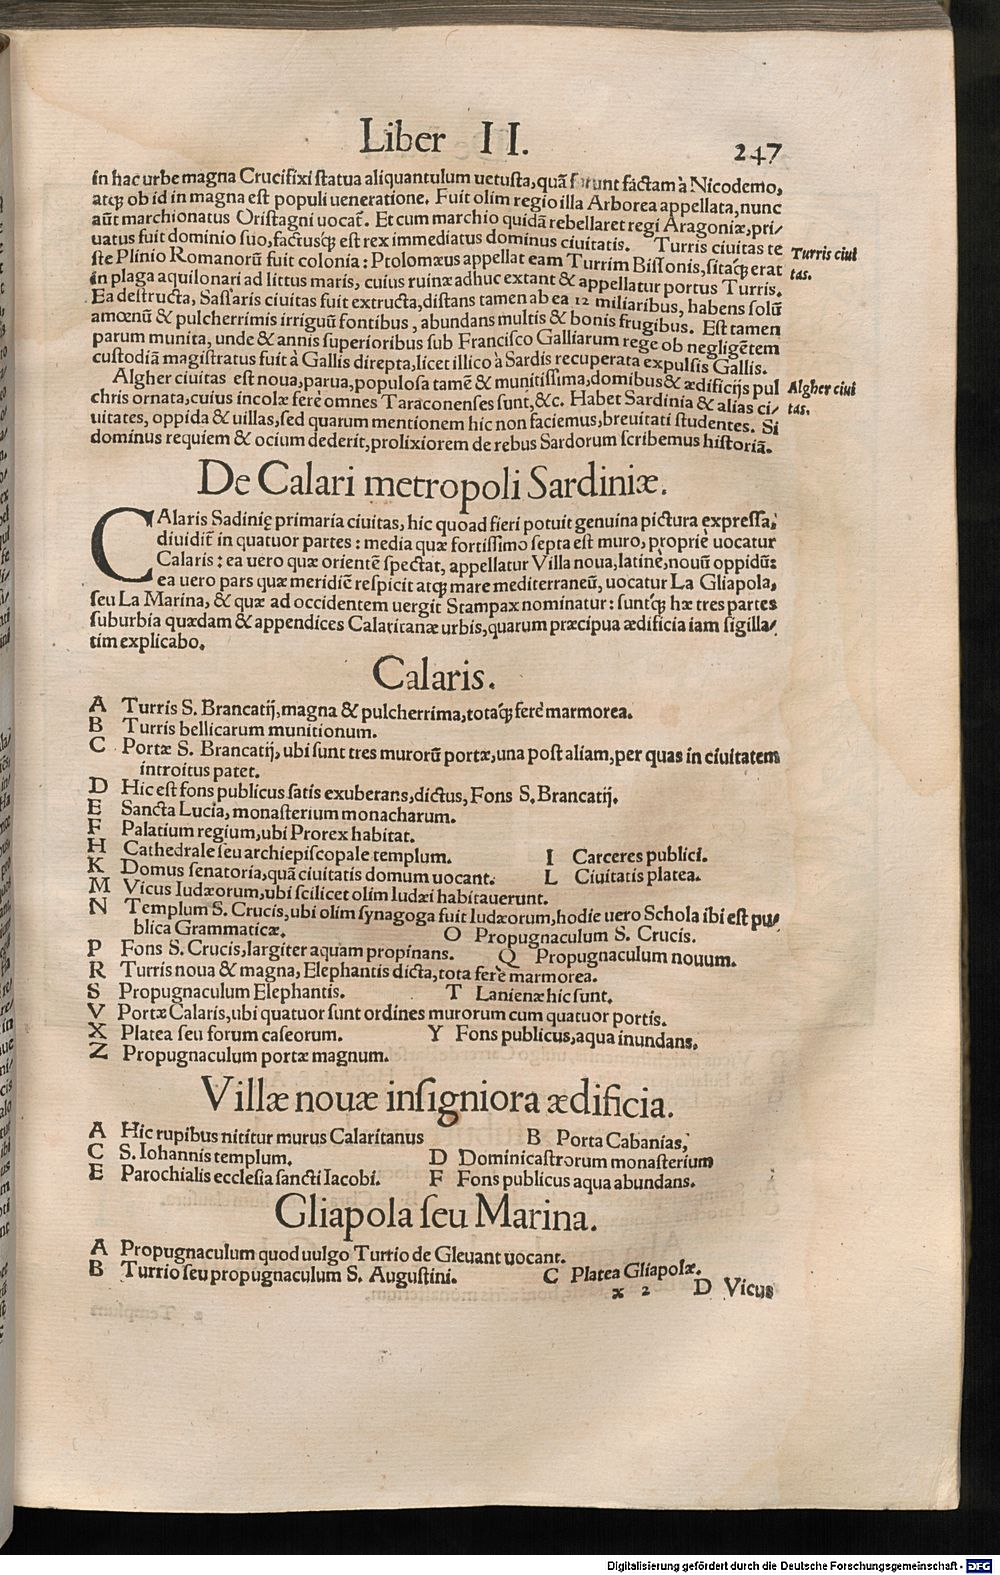 Liber II. 247
in hac urbe magna Crucifixi statua aliquantulum uetusta, quã ferunt factam à Nicodemo,
atq; ob id in magna est populi ueneratione. Fuit olim regio illa Arborea appellata, nunc
aũt marchionatus Oristagni uocat̃. Et cum marchio quidã rebellaret regi Aragoniæ, pri/
uatus fuit dominio suo, factusq́; est rex immediatus dominus ciuitatis. Turris ciuitas te
ste Plinio Romanorũ fuit colonia: Ptolomæus appellat eam Turrim Bissonis, sitaq́; erat
in plaga aquilonari ad littus maris, cuius ruinæ adhuc extant & appellatur portus Turris.
Ea destructa, Sassaris ciuitas fuit extructa, distans tamen ab ea 12 miliaribus, habens solũ
amœnũ & pulcherrimis irriguũ fontibus, abundans multis & bonis frugibus. Est tamen
parum munita, unde & annis superioribus sub Francisco Galliarum rege ob negligẽtem
custodiã magistratus fuit à Gallis direpta, licet illico à Sardis recuperata expulsis Gallis.
Turris ciui
tas.
Algher ciuitas est noua, parua, populosa tamẽ & munitissima, domibus & ædificijs pul
chris ornata, cuius incolæ ferè omnes Taraconenses sunt, &c. Habet Sardinia & alias ci/
uitates, oppida & uillas, sed quarum mentionem hic non faciemus, breuitati studentes. Si
dominus requiem & ocium dederit, prolixiorem de rebus Sardorum scribemus historiã.
Algher ciui
tas.
De Calari metropoli Sardiniæ.
CAlaris Sadinię primaria ciuitas, hic quoad fieri potuit genuina pictura expressa,
diuidit̃ in quatuor partes: media quæ fortissimo septa est muro, propriè uocatur
Calaris: ea uero quæ orientẽ spectat, appellatur Villa noua, latinè, nouũ oppidũ:
ea uero pars quæ meridiẽ respicit atq; mare mediterraneũ, uocatur La Gliapola,
seu La Marina, & quæ ad occidentem uergit Stampax nominatur: suntq́; hæ tres partes
suburbia quædam & appendices Calaritanæ urbis, quarum præcipua ædificia iam sigilla/
tim explicabo.
Calaris.
A Turris S. Brancatij, magna & pulcherrima, totaq́; ferè marmorea.
B Turris bellicarum munitionum.
C Portæ S. Brancatij, ubi sunt tres murorũ portæ, una post aliam, per quas in ciuitatem
introitus patet.
D Hic est fons publicus satis exuberans, dictus, Fons S. Brancatij.
E Sancta Lucia, monasterium monacharum.
F Palatium regium, ubi Prorex habitat.
H Cathedrale seu archiepiscopale templum. I Carceres publici.
K Domus senatoria, quã ciuitatis domum uocant. L Ciuitatis platea.
M Vicus Iudæorum, ubi scilicet olim Iudæi habitauerunt.
N Templum S. Crucis, ubi olim synagoga fuit Iudæorum, hodie uero Schola ibi est pu/
blica Grammaticæ. O Propugnaculum S. Crucis.
P Fons S. Crucis, largiter aquam propinans. Q Propugnaculum nouum.
R Turris noua & magna, Elephantis dicta, tota ferè marmorea.
S Propugnaculum Elephantis. T Lanienæ hic sunt.
V Portæ Calaris, ubi quatuor sunt ordines murorum cum quatuor portis.
X Platea seu forum caseorum. Y Fons publicus, aqua inundans.
Z Propugnaculum portæ magnum.
Villæ nouæ insigniora ædificia.
A Hic rupibus nititur murus Calaritanus B Porta Cabanias,
C S. Iohannis templum. D Dominicastrorum monasterium
E Parochialis ecclesia sancti Iacobi. F Fons publicus aqua abundans.
Gliapola seu Marina.
A Propugnaculum quod uulgo Turrio de Gleuant uocant.
B Turrio seu propugnaculum S. Augustini. C Platea Gliapolæ.
x 2 D Vicus
Digitalisierung gefördert durch die Deutsche Forschungsgemeinschaft - DFG